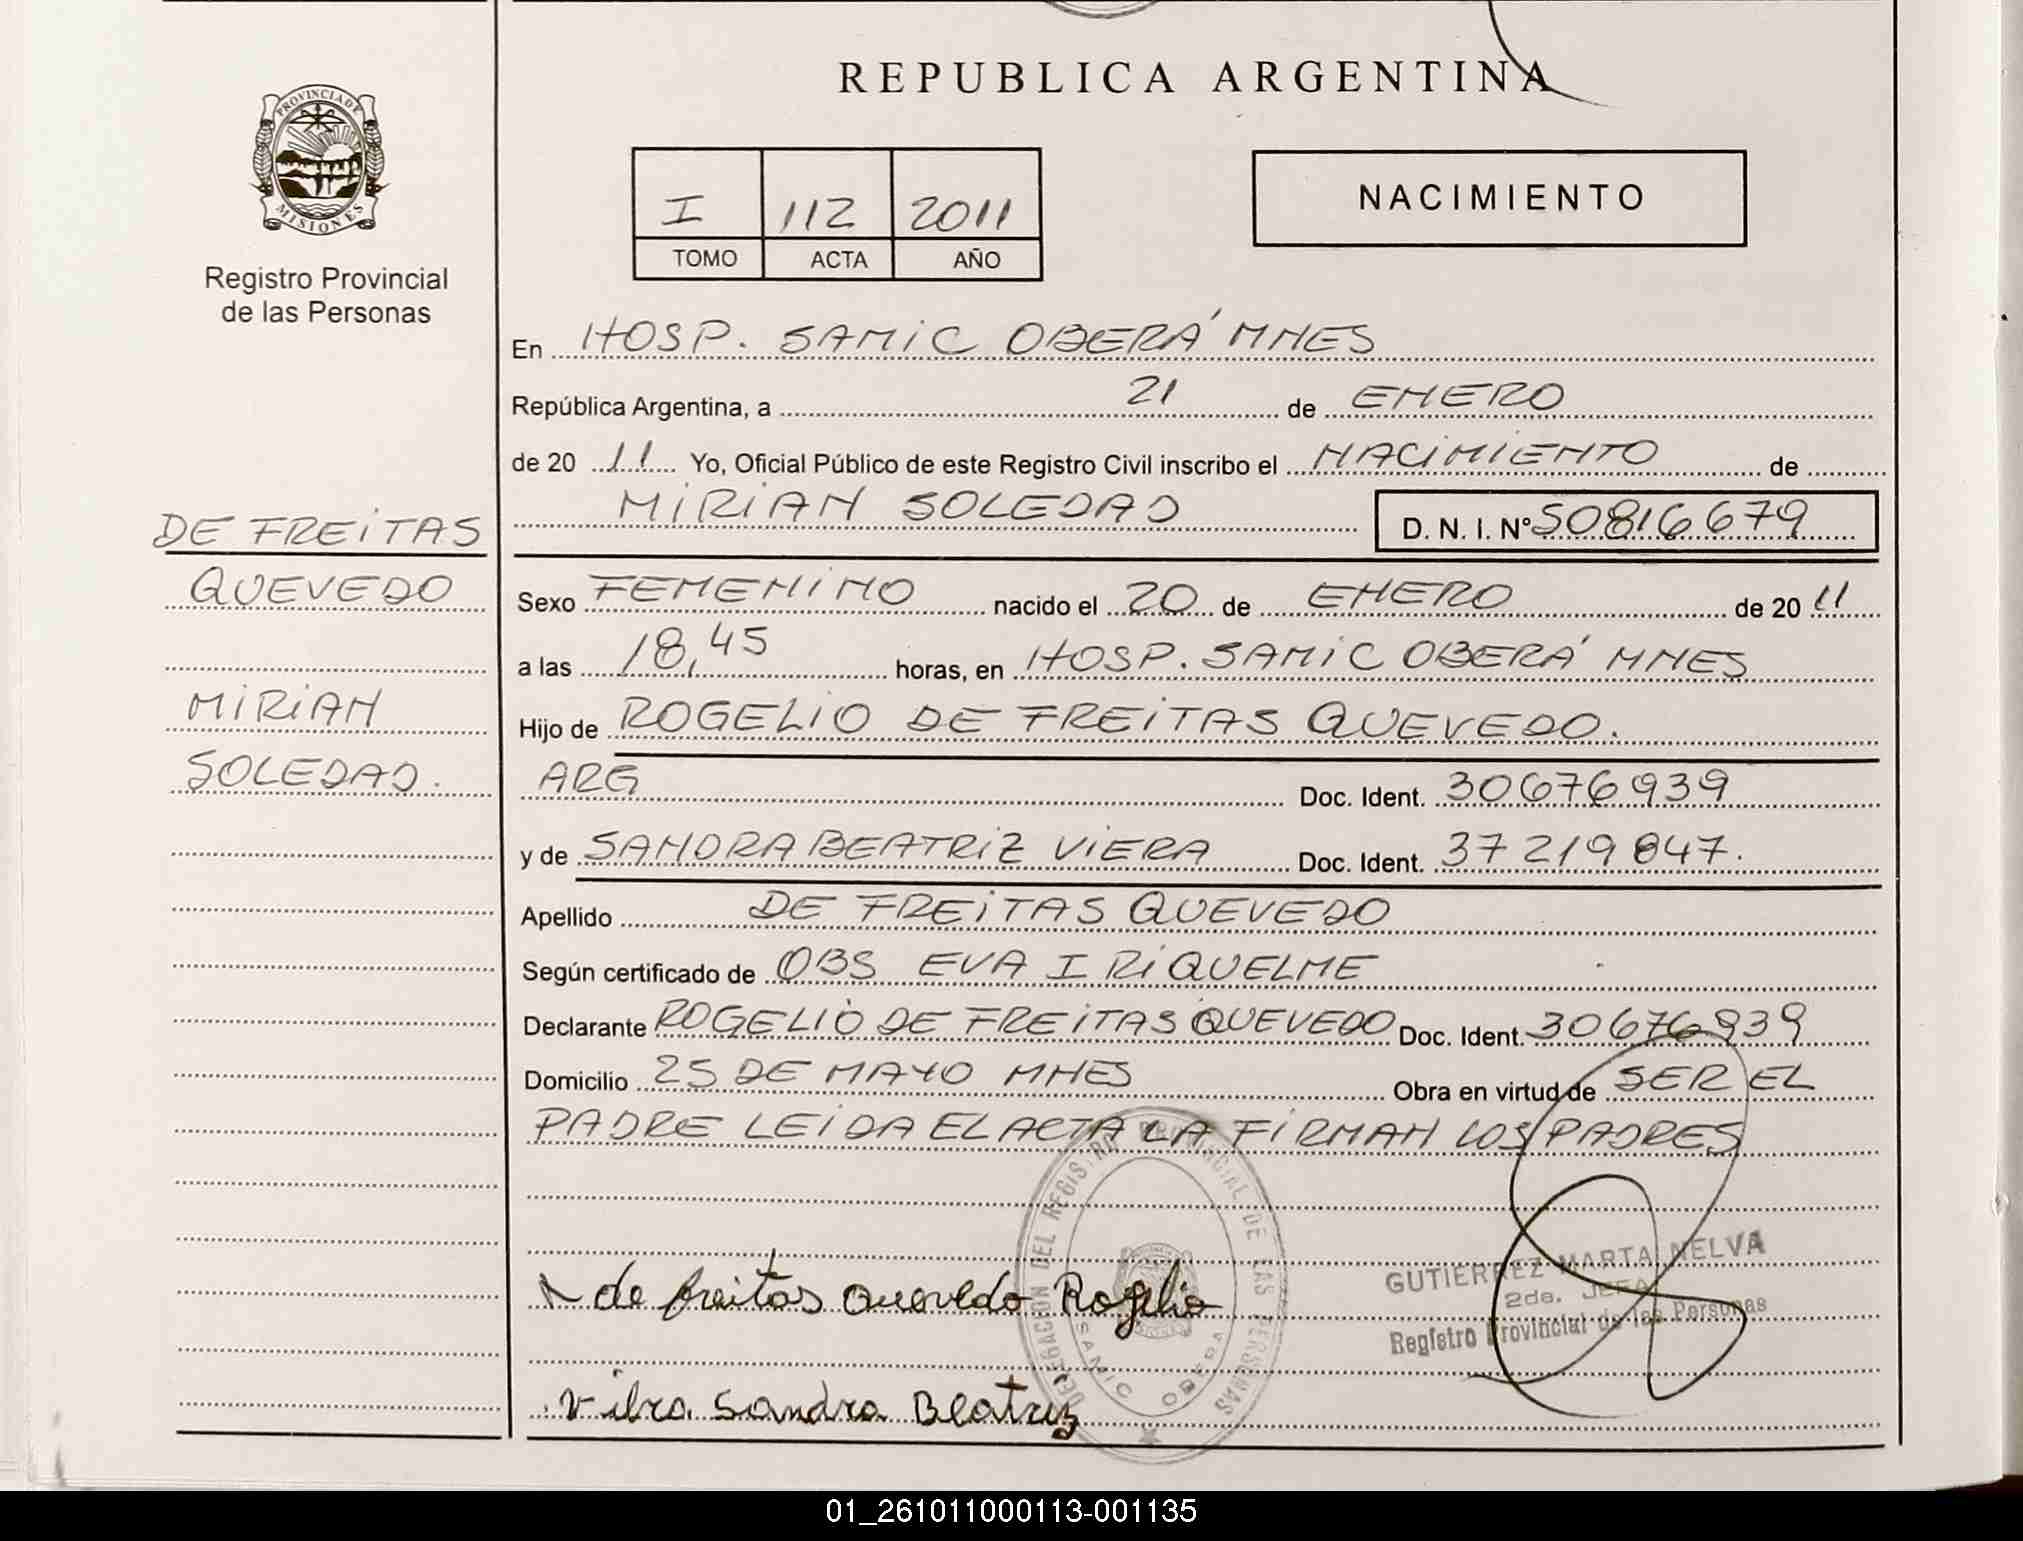 REPUBLICA ARGENTINA
PROVINCIA DE
MISIONES
Registro Provincial
de las Personas
I 112 2011
TOMO ACTA AÑO
NACIMIENTO
En HOSP. SAMIC OBERÁ MNES
República Argentina, a 21 de ENERO
de 20 11 Yo, Oficial Público de este Registro Civil inscribo el NACIMIENTO de
MIRIAN SOLEDAD D. N. I. Nº 50816679
DE FREITAS
QUEVEDO
MIRIAN
SOLEDAD.
Sexo FEMENINO nacido el 20 de ENERO de 20 11
a las 18,45 horas, en HOSP. SAMIC OBERÁ MNES
Hijo de ROGELIO DE FREITAS QUEVEDO.
ARG Doc. Ident. 30676939
y de SANDRA BEATRIZ VIERA Doc. Ident. 37219847.
Apellido DE FREITAS QUEVEDO
Según certificado de OBS EVA I RIQUELME
Declarante ROGELIO DE FREITAS QUEVEDO Doc. Ident. 30676939
Domicilio 25 DE MAYO MNES Obra en virtud de SER EL
PADRE LEIDA EL ACTA LA FIRMAN LOS PADRES
DELEGACION DEL REGISTRO PROVINCIAL DE LAS PERSONAS
SAMIC OBERA
de freitas Quevedo Rogelio
Viera Sandra Beatriz
GUTIERREZ MARTA NELVA
2da. JEFA
Registro Provincial de las Personas
01_261011000113-001135